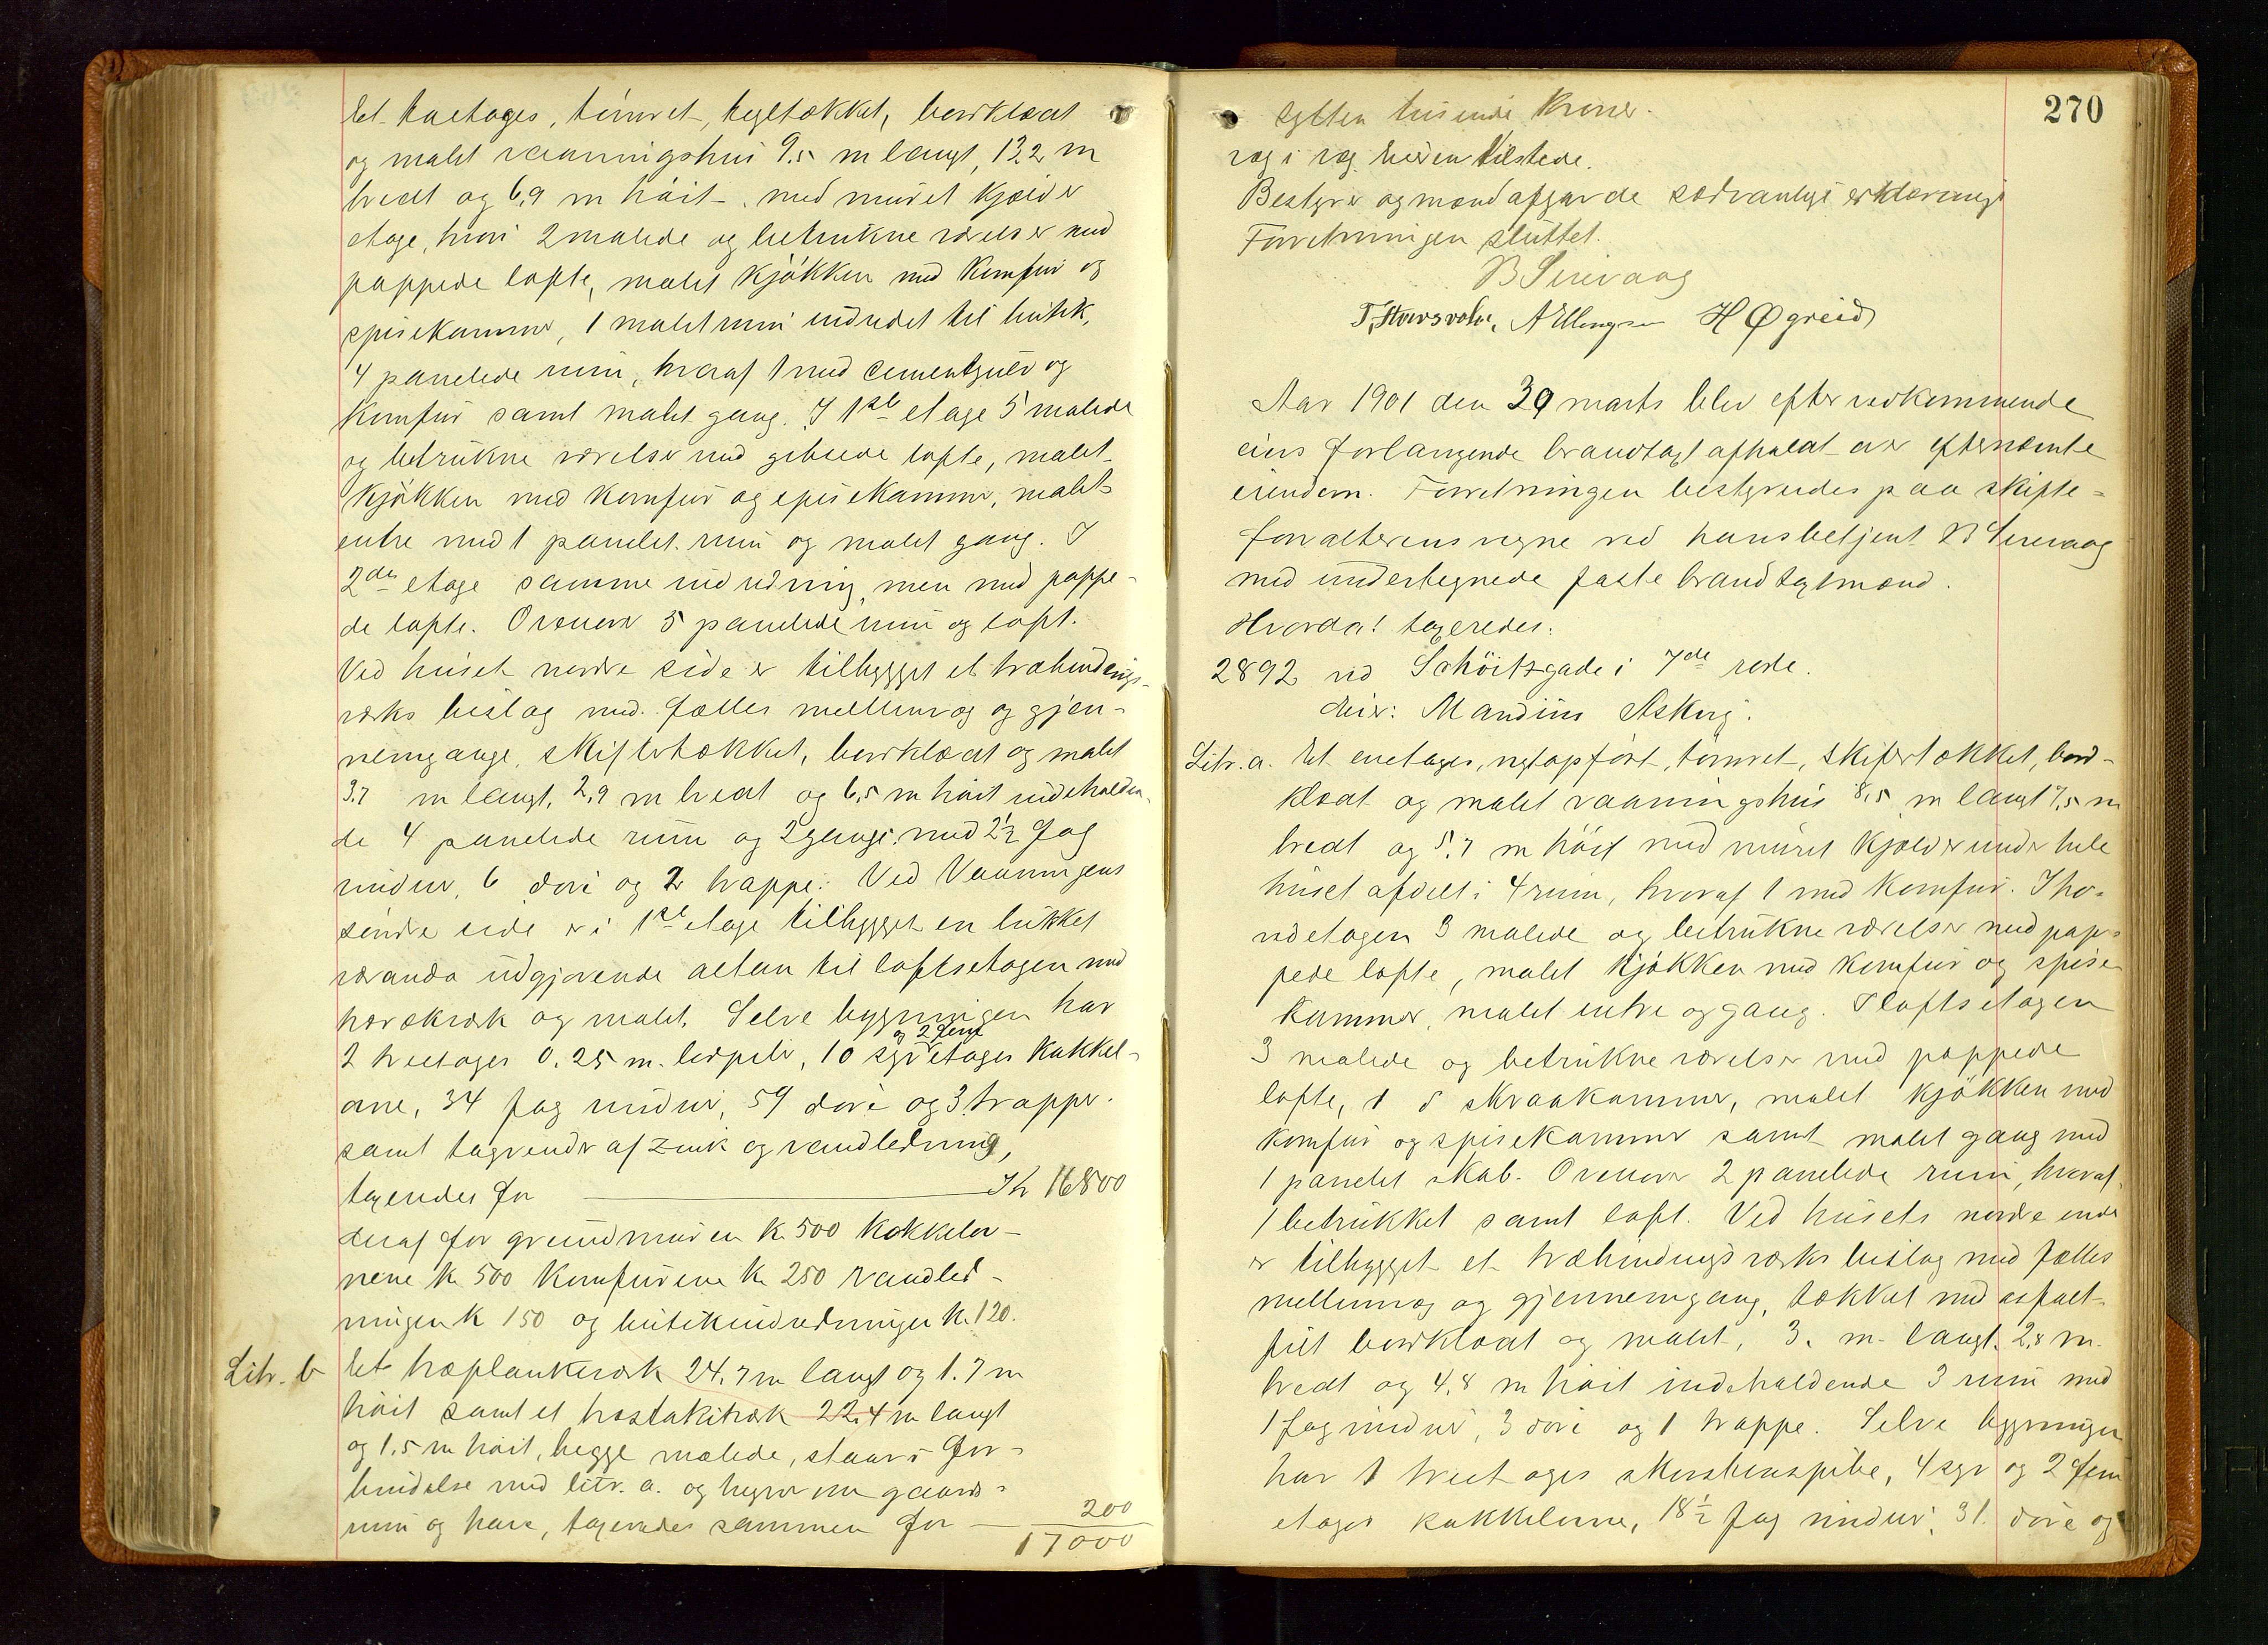 Et toetages, tømret, tegltækket, bordklædt
og malet vaaningshus 9.5 m langt, 13,2 m
bredt og 6,9 m høit – med muret kjælder
etage, hvori 2 malede og betrukne værelser med
pappede lofte, malet kjøkken med komfur og
spisekammer, 1 malet rum indredet til butik,
4 panelede rum, hvoraf 1 med cementgulv og
komfur samt malet gang. I 1ste etage 5 malede
og betrukne værelser med gibsede lofte, malet
kjøkken med komfur og spisekammer, malet
entre med 1 panelet rum og malet gang. I
2den etage samme indredning, men med pappe-
de lofte. Ovenover 5 panelede rum og loft.
Ved huset nordre side er tilbygget et træbindings-
værks bislag med fælles mellemvæg og gjen-
nemgange, skifertækket, bordklædt og malet
3.7 m langt, 2,9 m bredt og 6,5 m høit indeholden-
de 4 panelede rum og 2 gange med 2½ fag
vinduer, 6 døre og 2 trapper. Ved Vaaningens
søndre side er i 1ste etage tilbygget en lukket
veranda udgjørende altan til loftsetagen med
trærækværk og malet. Selve bygningen har
og 2 fem
2 treetages 0.25 m. ledpibe, 10 syvetages kakkel-
ovne, 34 fag vinduer, 59 døre og 3 trapper
samt tagrender af zink og vandledning,
taxeredes for Kr 16800
deraf for grundmuren K. 500 kakkelov-
nene K. 500 Komfurene K. 250 vandled-
ningen K 150 og butikindredningen K. 120.
Litr. b Et træplankeværk 24,7 m langt og 1.7 m
høit samt et træstakitværk 22,4 m langt
og 1.5 m høit, begge malede, staar i for-
bindelse med litr. a. og hegner om gaards-
rum og have, taxeredes sammen for – 200
17000
270
sytten tusinde Kroner.
Bestyrer og mænd afgav de sædvanlige erklæringer
Forretningen sluttet.
B Sirevaag
T. Stavsvoln, A Ellingsen H Øgreid
Aar 1901 den 30 marts blev efter vedkommende
eiers forlangende brandtaxt afholdt over efternævnte
eiendom. Forretningen bestyredes paa skifte-
forvalterens vegne ved hans betjent B Sirevaag
med undertegnede faste brandtaxtmænd.
Hvorda! taxeredes:
2892 ved Schöitzgade i 7de rode.
Eier: Mandius Askvig.
Litr. a. Et enetages, nyopført, tømret, skifertækket, bord-
klædt og malet vaaningshus 8,5 m langt 7,5 m
bredt og 5.7 m høit med muret kjælder under hele
huset afdelt i 4 rum, hvoraf 1 med komfur. I ho-
vedetagen 3 malede og betrukne værelser med pap-
pede lofte, malet kjøkken med komfur og spise
kammer, malet entre og gang. I loftsetagen
3 malede og betrukne værelser med pappede
lofte, 1 d skraakammer, malet kjøkken med
komfur og spisekammer samt malet gang med
1 panelet skab. Ovenover 2 panelede rum, hvoraf
1 betrukket samt loft. Ved husets nordre ende
er tilbygget et træbindingsværks bislag med fælles
mellemvæg og gjennemgang, tækket med asfalt-
filt bordklædt og malet, 3. m. langt, 2,8 m.
bredt og 4,8 m høit indeholdende 3 rum med
1 fag vinduer, 3 døre og 1 trappe. Selve bygningen
har 1 treetages skorstenspibe, 4 syv og 2 fem
etages kakkelovne, 18½ fag vinduer, 31 døre og